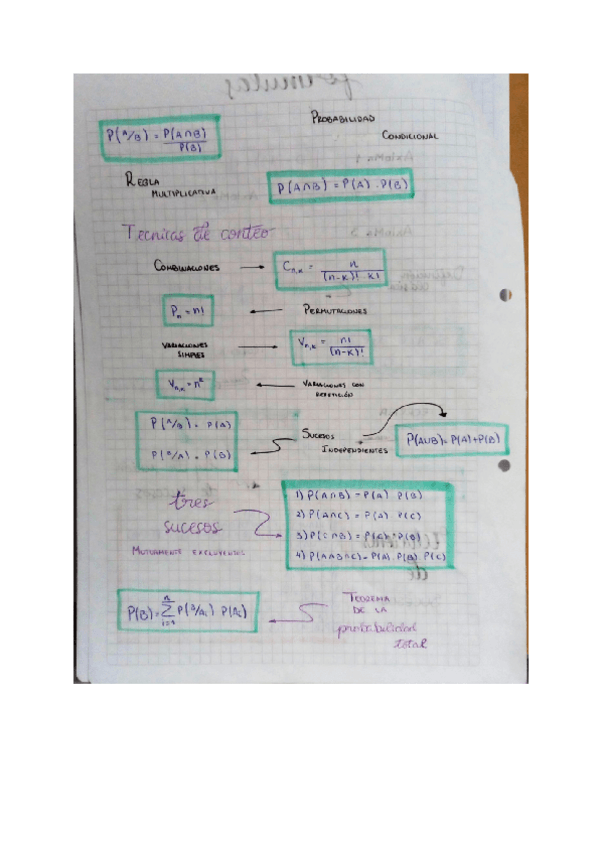 P(A/B) = P(A∩B) / P(B)
PROBABILIDAD
CONDICIONAL
REGLA
MULTIPLICATIVA
P(A∩B) = P(A) · P(B)
Tecnicas de conteo
COMBINACIONES → C n,k = n / (n-k)! · k!
Pn = n! ← PERMUTACIONES
VARIACIONES
SIMPLES → V n,k = n! / (n-k)!
V n,k = n^k ← VARIACIONES CON
REPETICIÓN
P(A/B) = P(A)
P(B/A) = P(B)
SUCESOS
INDEPENDIENTES
P(A∪B) = P(A)+P(B)
tres
sucesos
MUTUAMENTE EXCLUYENTES
1) P(A∩B) = P(A) · P(B)
2) P(A∩C) = P(A) · P(C)
3) P(C∩B) = P(C) · P(B)
4) P(A∩B∩C) = P(A) · P(B) · P(C)
P(B) = n Σ i=1 P(B/Ai) · P(Ai)
TEOREMA
DE LA
probabilidad
total